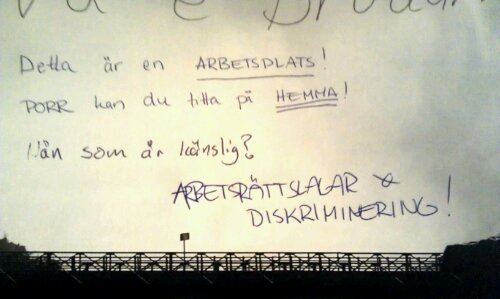 Detta är en ARBETSPLATS!
PORR kan du titta på HEMMA!
Nån som är känslig?
ARBETSRÄTTSLAGAR &
DISKRIMINERING!